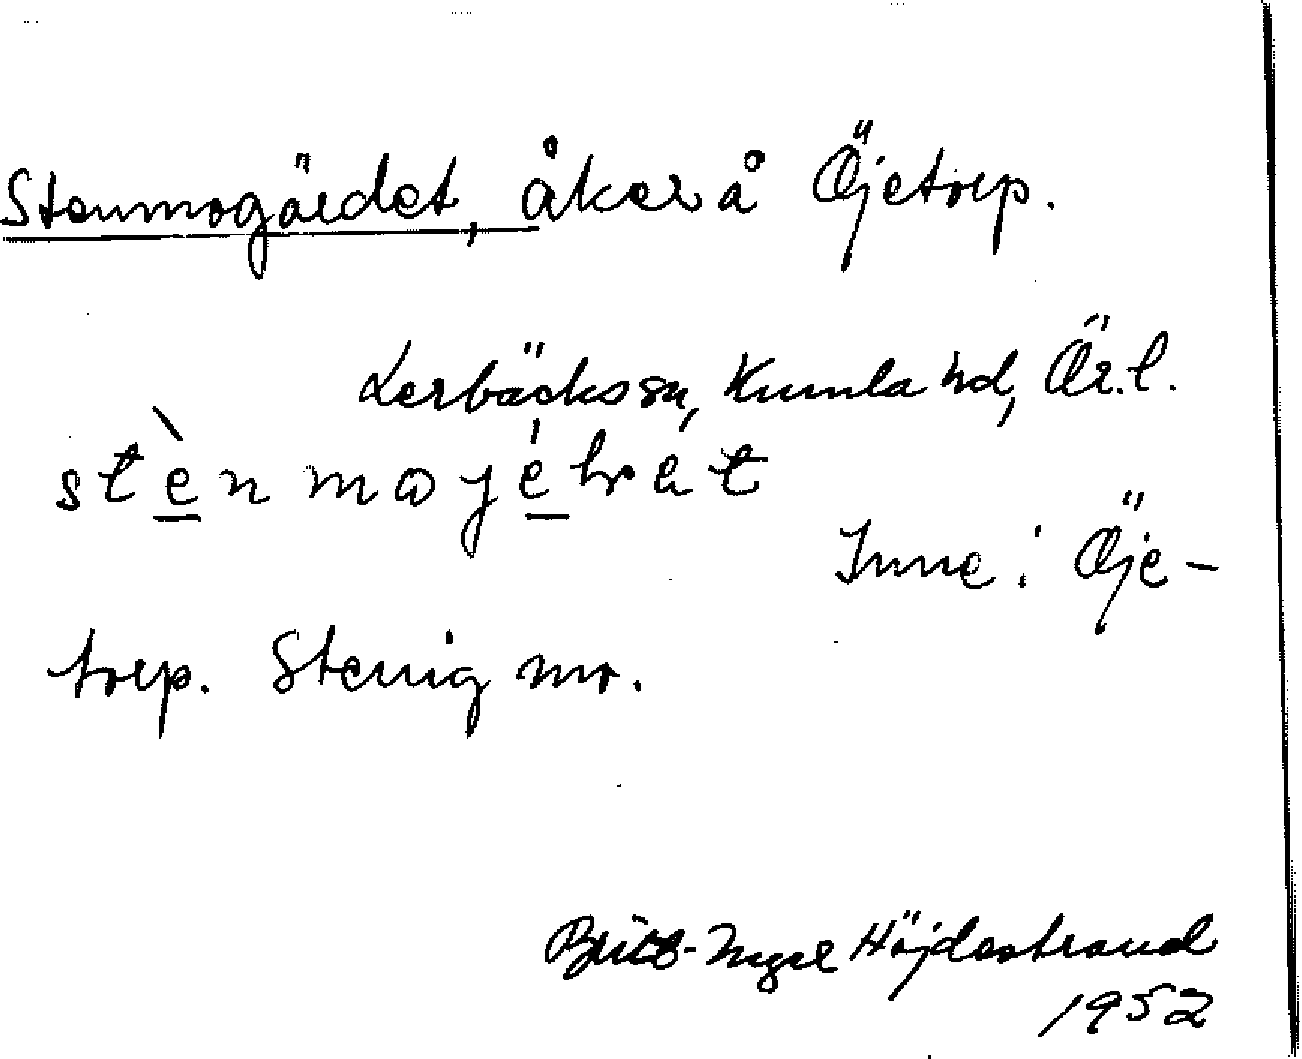 Stenmogärdet, åker å Öjetorp.
Lerbäcks sn, Kumla hd, Ör. l.
Inne i Öje-
torp. Stenig mo.
Britt-Inger Höjdestrand
1952